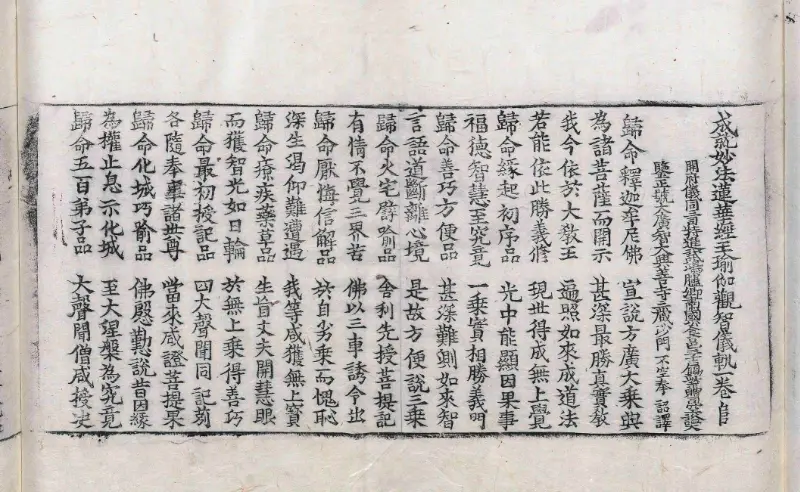 成就妙法蓮華經王瑜伽觀智儀軌一卷
開府儀同三司特進試鴻臚卿肅國公食邑三千
正號大廣智大興善寺三藏沙門 不空奉 詔譯
歸命釋迦牟尼佛 宣說方廣大乘與
為諸菩薩而開示 甚深最勝真實教
我今依於大教王 遍照如來成道法
若能依此勝義修 現世得成無上覺
歸命緣起初序品 光中能顯因果事
福德智慧至究竟 一乗實相勝義明
歸命善巧方便品 甚深難測如來智
言語道斷離心境 是故方便說三乗
歸命火宅譬喻品 舍利先授菩提記
有情不覺三界苦 佛以三車誘令出
歸命厭悔信解品 於自劣乗而愧恥
深生渴仰難遭遇 我等咸獲無上寶
歸命療疾藥草品 生盲丈夫開慧眼
而獲智光如日輪 於無上乗得善巧
歸命最初授記品 四大聲聞同記莂
各隨奉事諸世尊 當來咸證菩提果
歸命化城巧喻品 佛慇懃說昔因緣
為權止息示化城 至大涅槃為究竟
歸命五百弟子品 大聲聞僧咸授決